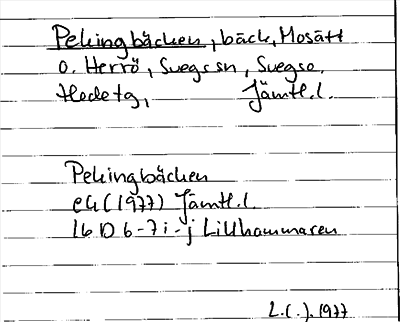 Pekingbäcken, bäck, Mosätt
o. Herrö, Svegs sn, Svegso.
Hedetg, Jämtl.l.
Pekingbäcken
ek (1977) Jämtl.l.
16 D 6-7 i-j Lillhammaren
L.(.). 1977